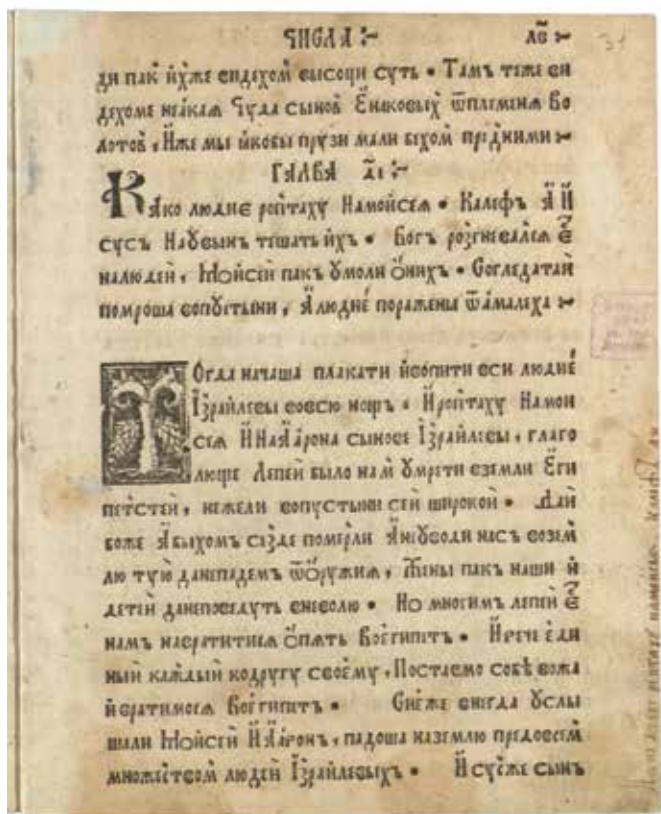 ЧИСЛА :~ ЛВ ~ 31
ди пак ихже видехом высоци суть • Там теже ви
дехоме неакая Чуда сынов Енаковых ѿплеменя Во
лотов, Иже мы якобы прузи мали бехом пред ними ~
ГЛАВА ДІ :~
Како людие роптаху Намойсея • Калеф А И
сус Наувын тешать их • Бог розгневался Е
налюдей, Мойсей пак умоли Оних • Согледатаи
помроша вопустыни, Алюдие поражены ѿамалеха ~
Тогда начаша плакати ивопити вси людие
Ізраилевы вовсю нощь • Ироптаху Намои
сея ИнаАарона сынове Ізраилевы, глаго
люще Лепей было нам умрети вземли Еги
петстей, нежели вопустыни сей широкой • Дай
боже Абыхомъ сезде померли Анеуводи нас возем
лю тую данепадемъ ѿОружия, Жены пак наши и
детей данеповедуть вневолю • Но многимъ лепей Е
намъ навратитися Опять Воегипет • Ирече еди
ный каждый кодругу своему, Поставмо собѣ вожа
ивратимося Воегипетъ • Сиеже внегда Услы
шали Мойсей ИАаронъ, падоша наземлю предовсем
множеством людей Ізраилевых • Исусже сынъ